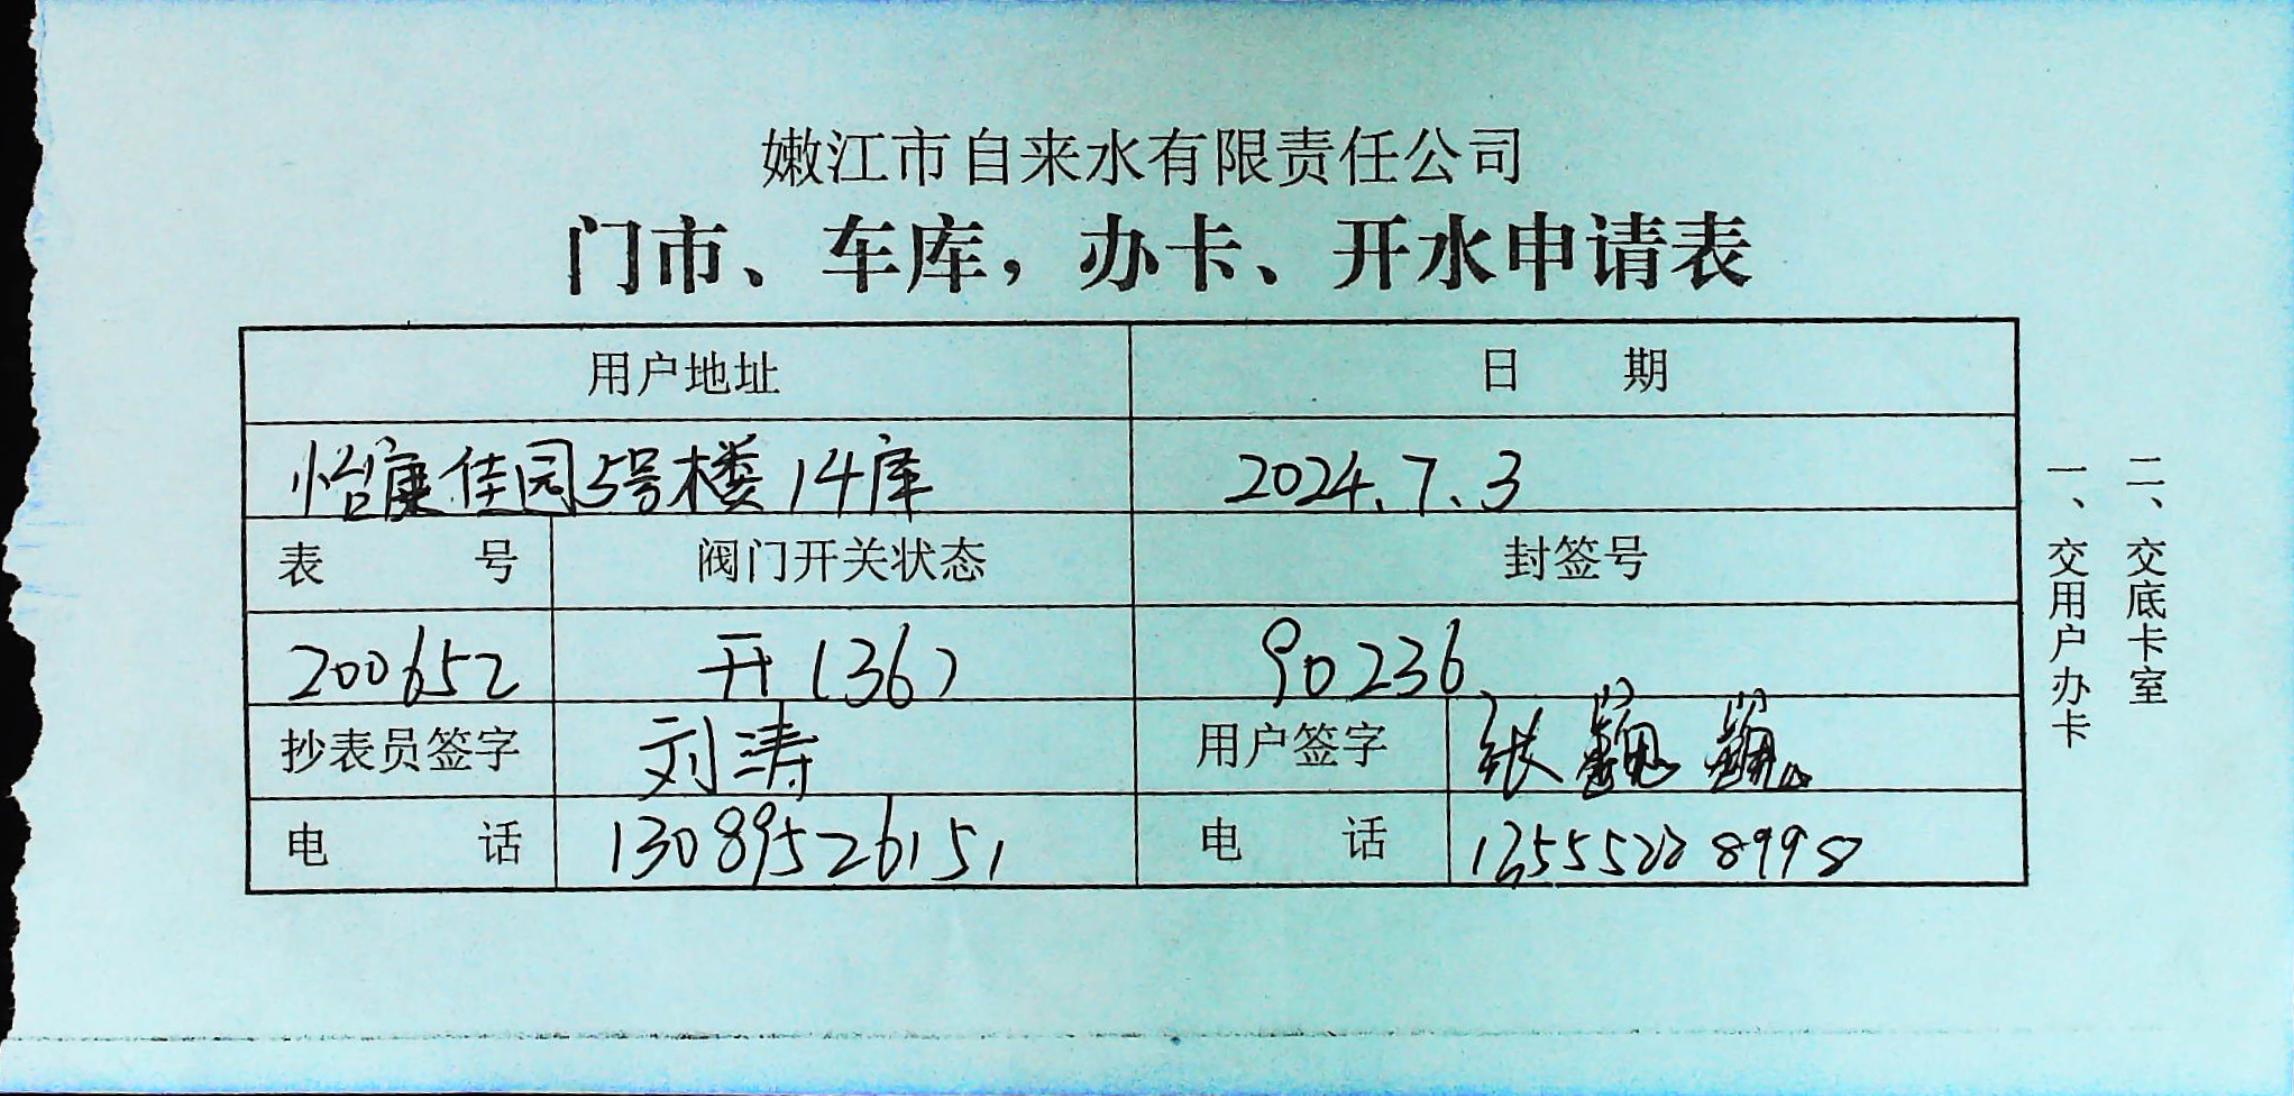 嫩江市自来水有限责任公司
门市、车库，办卡、开水申请表
用户地址 日 期
怡康佳园5号楼14库 2024.7.3
表 号 阀门开关状态 封签号
200652 开(36) 90236
抄表员签字 刘涛 用户签字 张
电 话 13089526151 电 话
一、交用户办卡
二、交底卡室